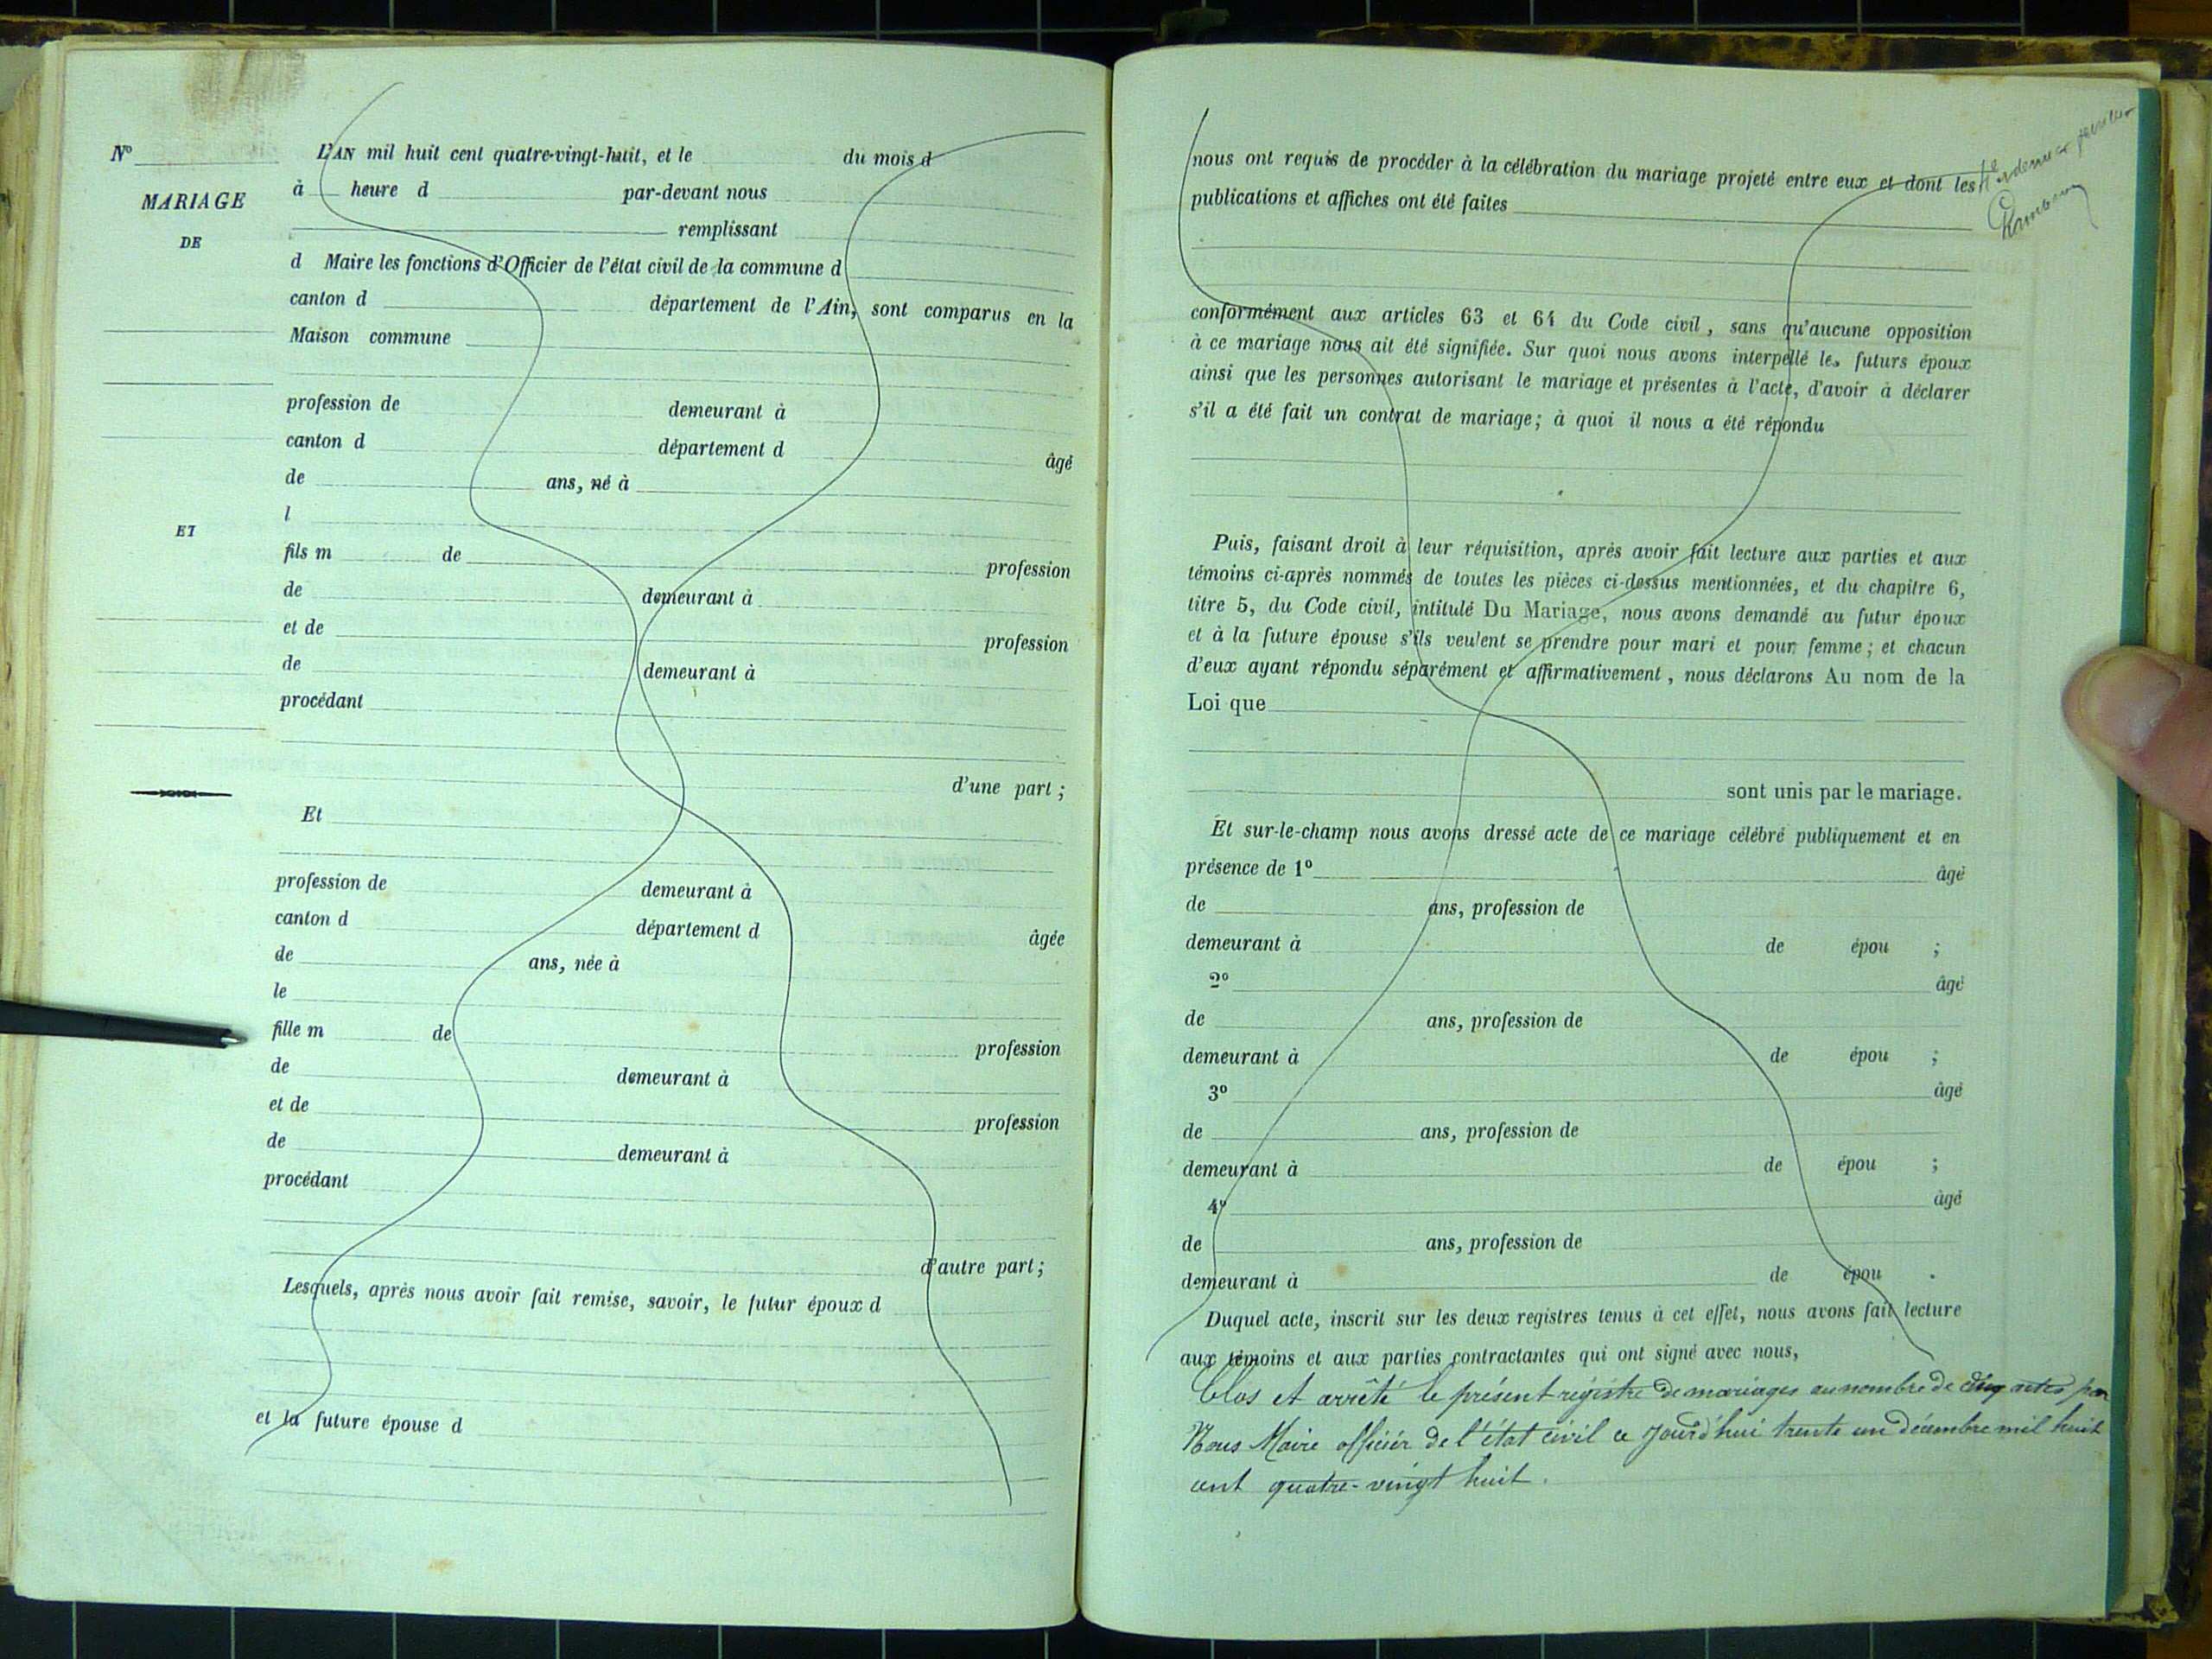 N°
L'AN mil huit cent quatre-vingt-huit, et le du mois d
MARIAGE
à heure d par-devant nous
DE
remplissant
d Maire les fonctions d'Officier de l'état civil de la commune d
canton d département de l'Ain, sont comparus en la
Maison commune
profession de demeurant à
canton d département d âgé
de ans, né à
l
ET
fils m de profession
de demeurant à
et de profession
de demeurant à
procédant
d'une part ;
Et
profession de demeurant à
canton d département d âgée
de ans, née à
le
fille m de profession
de demeurant à
et de profession
de demeurant à
procédant
d'autre part ;
Lesquels, après nous avoir fait remise, savoir, le futur époux d
et la future épouse d
nous ont requis de procéder à la célébration du mariage projeté entre eux et dont les
publications et affiches ont été faites
conformément aux articles 63 et 64 du Code civil, sans qu'aucune opposition
à ce mariage nous ait été signifiée. Sur quoi nous avons interpellé les futurs époux
ainsi que les personnes autorisant le mariage et présentes à l'acte, d'avoir à déclarer
s'il a été fait un contrat de mariage ; à quoi il nous a été répondu
Puis, faisant droit à leur réquisition, après avoir fait lecture aux parties et aux
témoins ci-après nommés de toutes les pièces ci-dessus mentionnées, et du chapitre 6,
titre 5, du Code civil, intitulé Du Mariage, nous avons demandé au futur époux
et à la future épouse s'ils veulent se prendre pour mari et pour femme ; et chacun
d'eux ayant répondu séparément et affirmativement, nous déclarons Au nom de la
Loi que
sont unis par le mariage.
Et sur-le-champ nous avons dressé acte de ce mariage célébré publiquement et en
présence de 1° âgé
de ans, profession de
demeurant à de épou ;
2° âgé
de ans, profession de
demeurant à de épou ;
3° âgé
de ans, profession de
demeurant à de épou ;
4° âgé
de ans, profession de
demeurant à de épou .
Duquel acte, inscrit sur les deux registres tenus à cet effet, nous avons fait lecture
aux témoins et aux parties contractantes qui ont signé avec nous,
Clos et arrêté le présent registre de mariages au nombre de cinq actes par
Nous Maire officier de l'état civil ce jourd'hui trente un décembre mil huit
cent quatre-vingt huit.